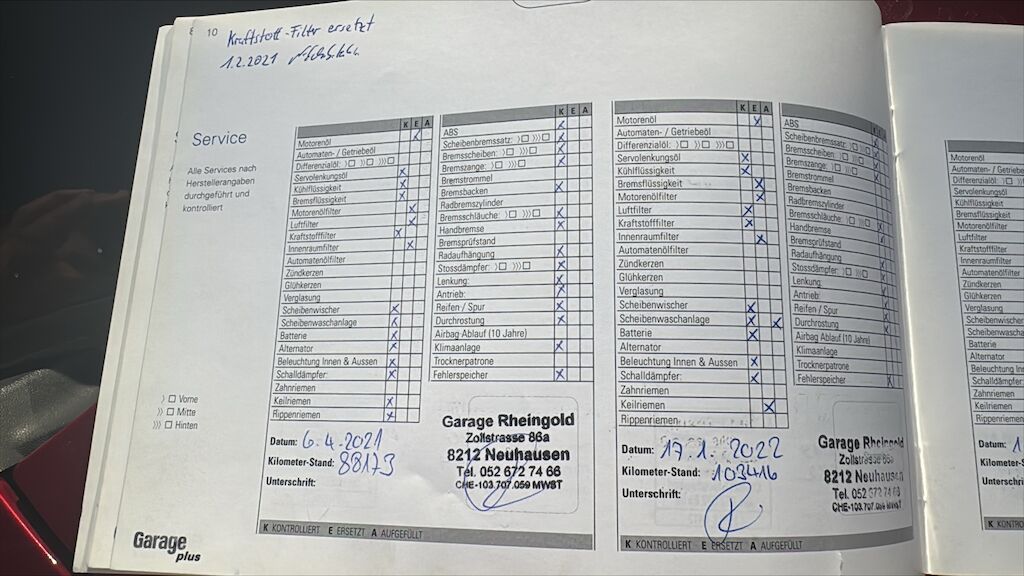 10
Kraftstoff-Filter ersetzt
1.2.2021
Service
Alle Services nach
Herstellerangaben
durchgeführt und
kontrolliert
〉 □ Vorne
〉〉 □ Mitte
〉〉〉 □ Hinten
Garage
plus
K E A
Motorenöl X
Automaten- / Getriebeöl
Differenzialöl: 〉□ 〉〉□ 〉〉〉□
Servolenkungsöl X
Kühlflüssigkeit X
Bremsflüssigkeit X
Motorenölfilter X
Luftfilter X
Kraftstofffilter X
Innenraumfilter X
Automatenölfilter
Zündkerzen
Glühkerzen
Verglasung
Scheibenwischer X
Scheibenwaschanlage X
Batterie X
Alternator X
Beleuchtung Innen & Aussen X
Schalldämpfer: X
Zahnriemen
Keilriemen X
Rippenriemen X
K E A
ABS X
Scheibenbremssatz: 〉□ 〉〉〉□ X
Bremsscheiben: 〉□ 〉〉〉□ X
Bremszange: 〉□ 〉〉〉□ X
Bremstrommel
Bremsbacken X
Radbremszylinder
Bremsschläuche: 〉□ 〉〉〉□ X
Handbremse X
Bremsprüfstand
Radaufhängung X
Stossdämpfer: 〉□ 〉〉〉□ X
Lenkung: X
Antrieb: X
Reifen / Spur X
Durchrostung X
Airbag Ablauf (10 Jahre)
Klimaanlage X
Trocknerpatrone
Fehlerspeicher X
Datum: 6.4.2021
Kilometer-Stand: 88173
Unterschrift:
Garage Rheingold
Zollstrasse 86a
8212 Neuhausen
Tel. 052 672 74 66
CHE-103.707.059 MWST
K KONTROLLIERT E ERSETZT A AUFGEFÜLLT
K E A
Motorenöl X
Automaten- / Getriebeöl
Differenzialöl: 〉□ 〉〉□ 〉〉〉□
Servolenkungsöl X
Kühlflüssigkeit X
Bremsflüssigkeit X
Motorenölfilter X
Luftfilter X
Kraftstofffilter X
Innenraumfilter X
Automatenölfilter
Zündkerzen
Glühkerzen
Verglasung
Scheibenwischer X
Scheibenwaschanlage X X
Batterie X
Alternator
Beleuchtung Innen & Aussen X
Schalldämpfer: X
Zahnriemen
Keilriemen X
Rippenriemen
ABS
Scheibenbremssatz: 〉□ 〉〉〉□
Bremsscheiben: 〉□ 〉〉〉□
Bremszange: 〉□ 〉〉〉□
Bremstrommel
Bremsbacken
Radbremszylinder
Bremsschläuche: 〉□ 〉〉〉□
Handbremse
Bremsprüfstand
Radaufhängung
Stossdämpfer: 〉□ 〉〉〉□
Lenkung:
Antrieb:
Reifen / Spur
Durchrostung
Airbag Ablauf (10 Jahre)
Klimaanlage
Trocknerpatrone
Fehlerspeicher
Datum: 17.1.2022
Kilometer-Stand: 103416
Unterschrift:
Garage Rheingold
Zollstrasse 86a
8212 Neuhausen
Tel. 052 672 74 66
CHE-103.707.059 MWST
K KONTROLLIERT E ERSETZT A AUFGEFÜLLT
Motorenöl
Automaten- / Getriebeöl
Differenzialöl:
Servolenkungsöl
Kühlflüssigkeit
Bremsflüssigkeit
Motorenölfilter
Luftfilter
Kraftstofffilter
Innenraumfilter
Automatenölfilter
Zündkerzen
Glühkerzen
Verglasung
Scheibenwischer
Batterie
Alternator
Schalldämpfer:
Zahnriemen
Keilriemen
Rippenriemen
Datum:
Unterschrift: